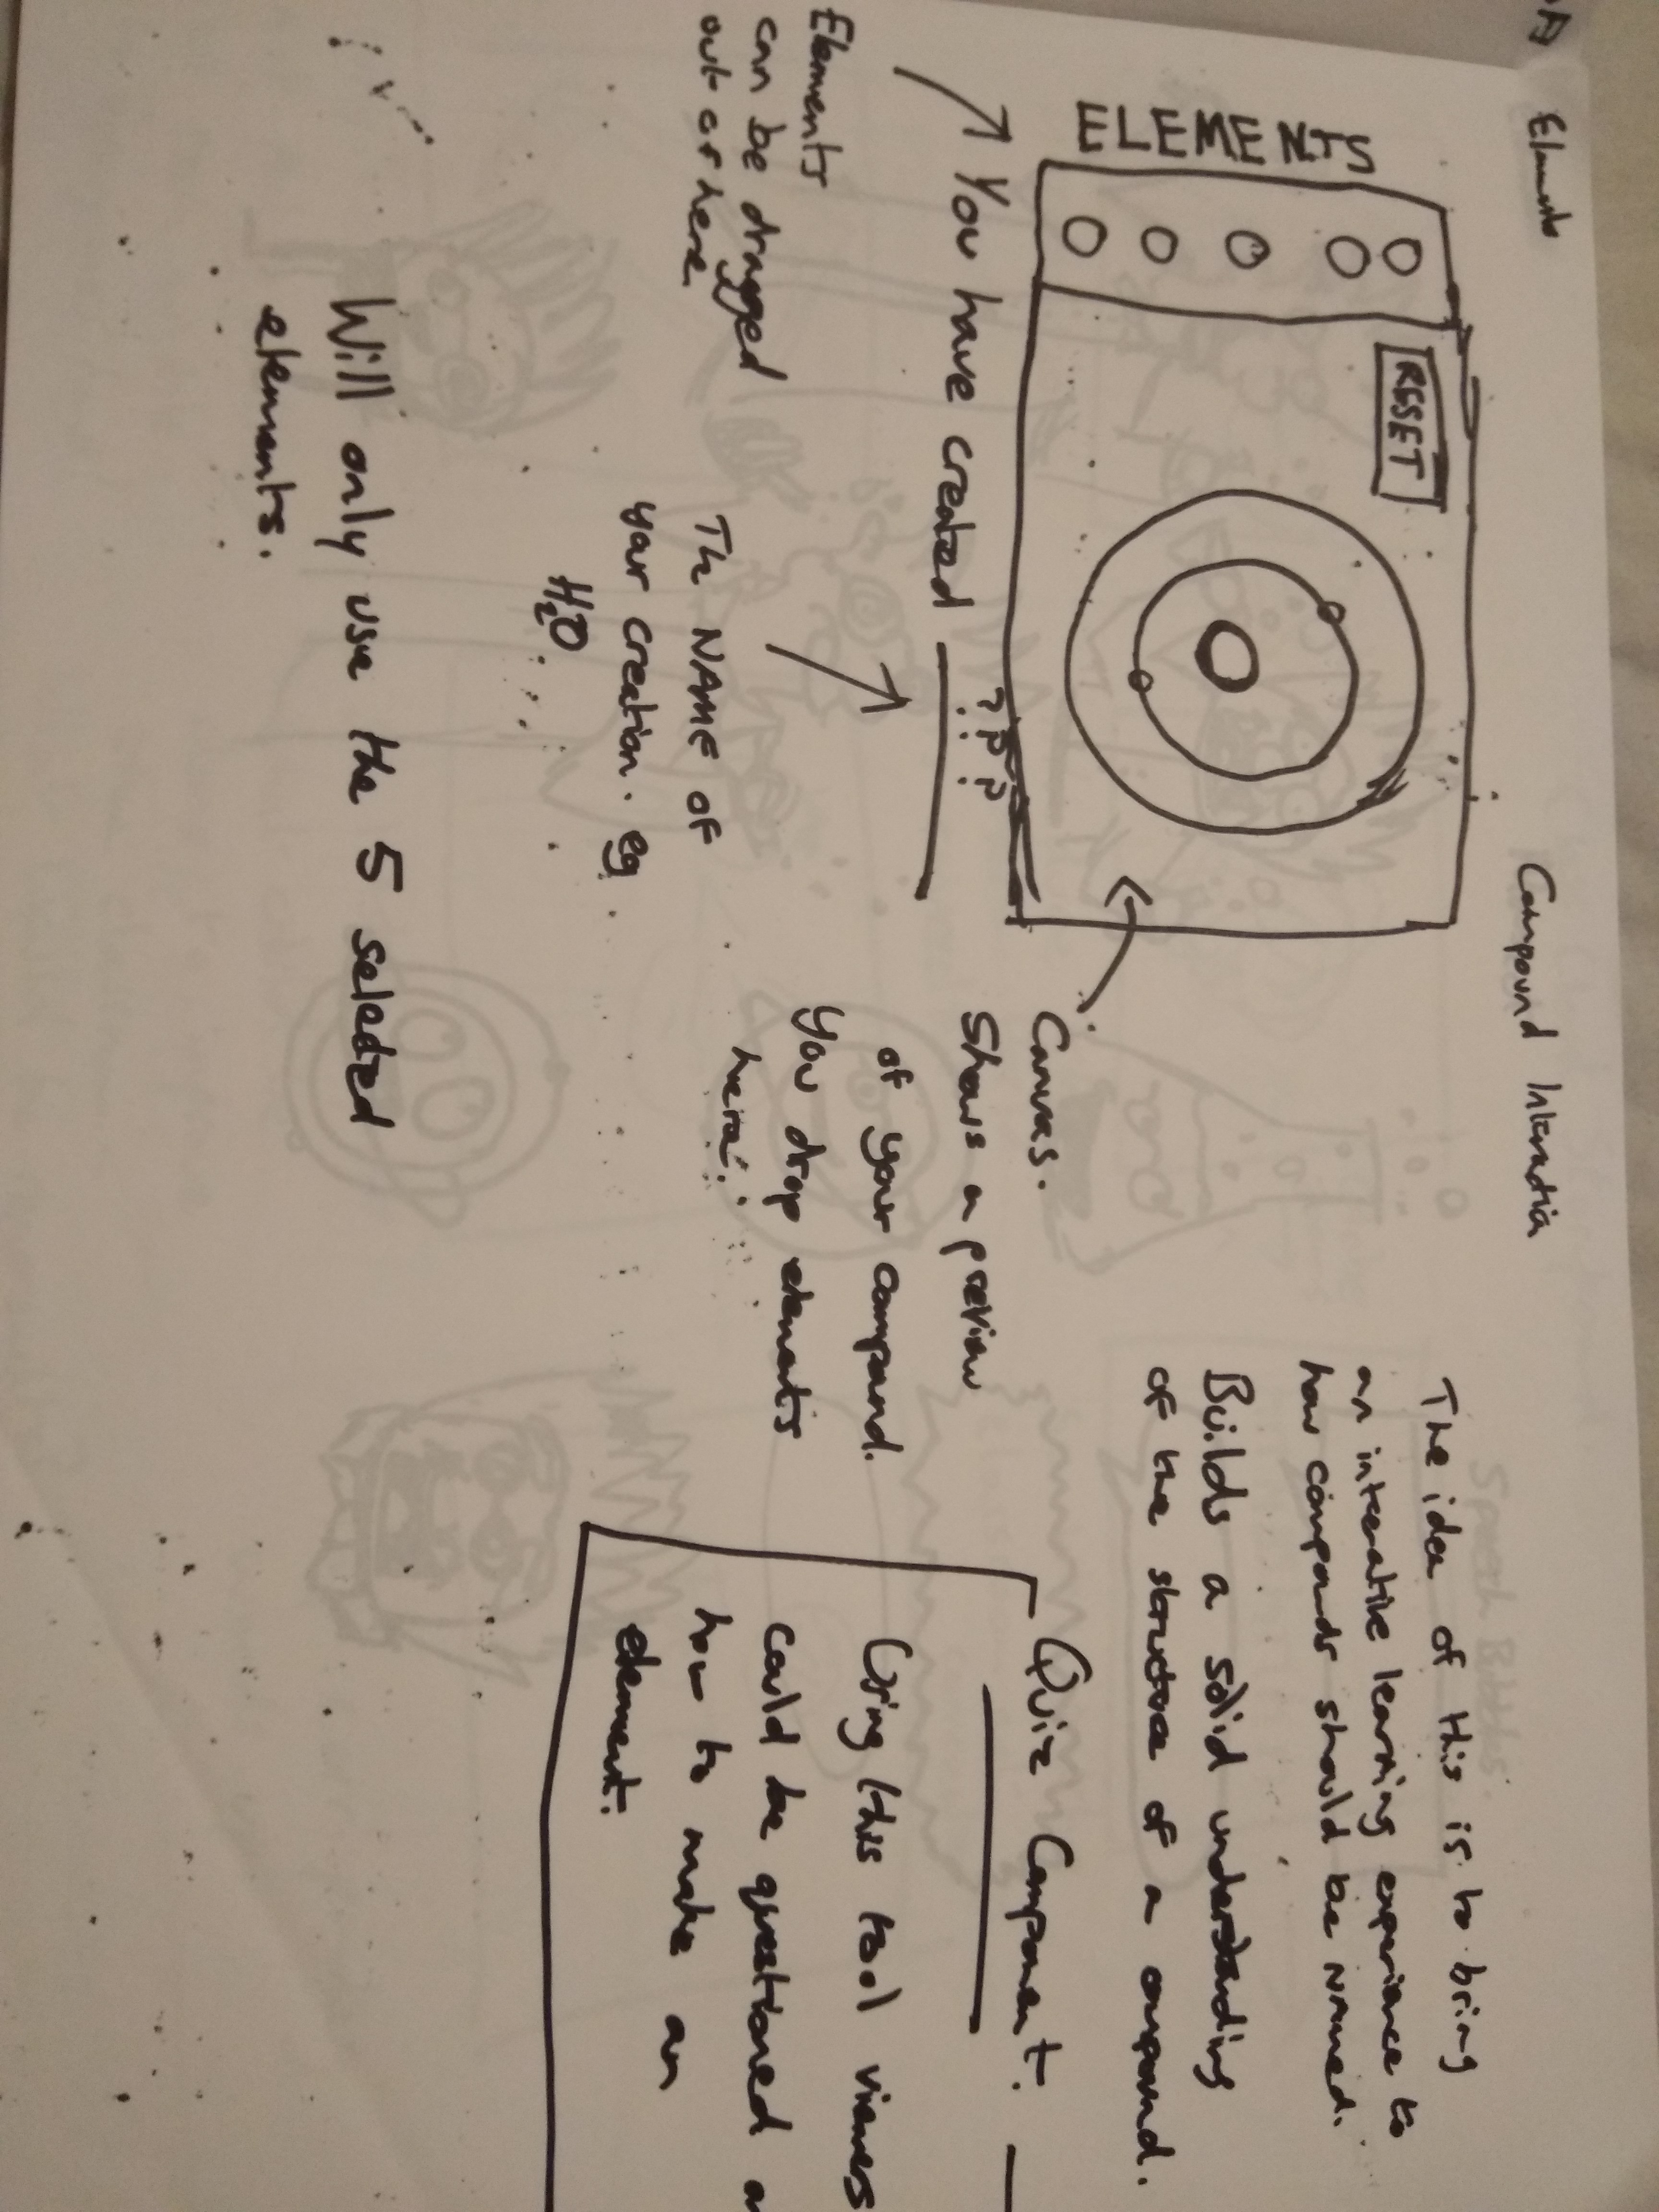 Elements
Compound Interactia
ELEMENTS
RESET
You have created ???
Elements
can be dragged
out of here
The NAME OF
your creation. eg
H2O
Canvas.
Shows a preview
of your compound.
You drop elements
here.
Will only use the 5 selected
elements.
The idea of this is to bring
an interactive learning experience to
how compounds should be NAMED.
Builds a solid understanding
of the structure of a compound.
Quiz Component.
Using this tool viewers
could be questioned
how to make an
element.
Speech Bubbles.